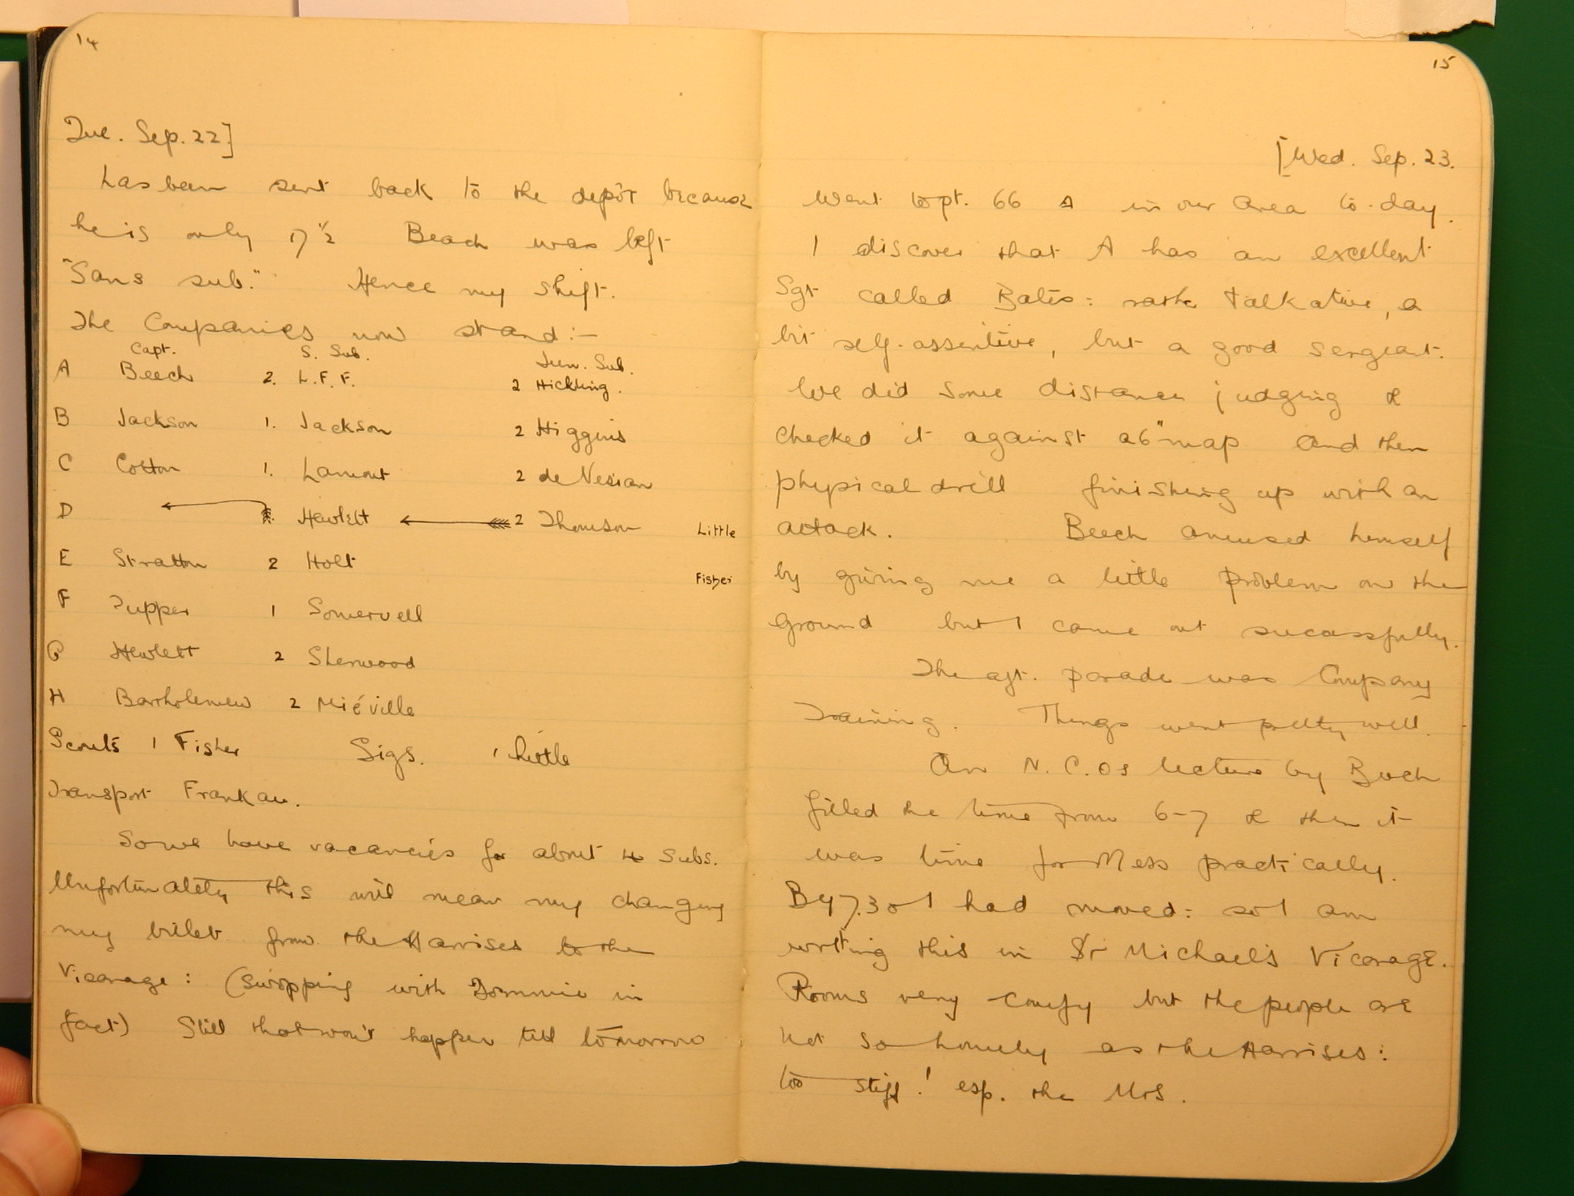 14
Tue. Sep. 22]
has been sent back to the depôt because
he is only 17 ½ Beach was left
"Sans sub." Hence my shift.
The Companies now stand :-
Capt. S. Sub. Jun. Sub.
A Beech 2. L.F.F. 2 Hickling.
B Jackson 1. Jackson 2 Higgins
C Cotton 1. Lamont 2 de
D Hewlett 2 Thomson Little
E Stratton 2 Holt Fisher
F Tupper 1 Somervell
G Hewlett 2 Sherwood
H Bartholemew 2 Miéville
Scouts 1 Fisher Sigs. 1 Little
Transport Frankau.
So we have vacancies for about 4 subs.
Unfortunately this will mean my changing
my billet from the Harrises to the
Vicarage : (swopping with Tommie in
fact) Still that won't happen till tomorrow
15
[Wed. Sep. 23.
Went to pt. 66 in our area to-day.
I discover that A has an excellent
Sgt called Bates : rather talkative, a
bit self-assertive, but a good sergeant.
We did some distance judging &
checked it against a 6" map and then
physical drill finishing up with an
attack. Beech amused himself
by giving me a little problem on the
ground but I came out sucassfully.
The aft. parade was Company
Training. Things went pretty well.
An N.C.Os lecture by Beech
filled the time from 6-7 & then it
was time for Mess practically.
By 7.30 I had moved : so I am
writing this in St Michael's Vicarage.
Rooms very comfy but the people are
not so homely as the Harrises :
too stiff ! esp. the Mrs.